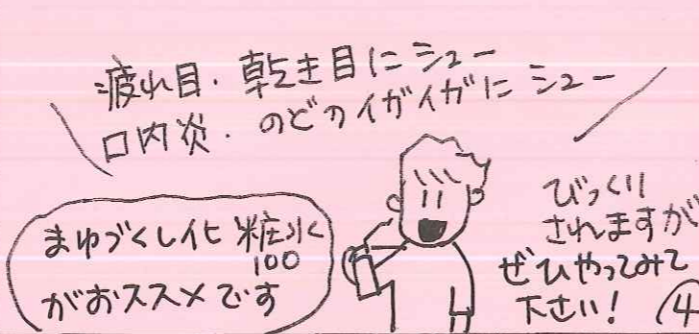 疲れ目・乾き目にシュー
口内炎・のどのイガイガにシュー
まゆづくし化粧水
100
がおススメです
びっくり
されますが
ぜひやってみて
下さい!
④